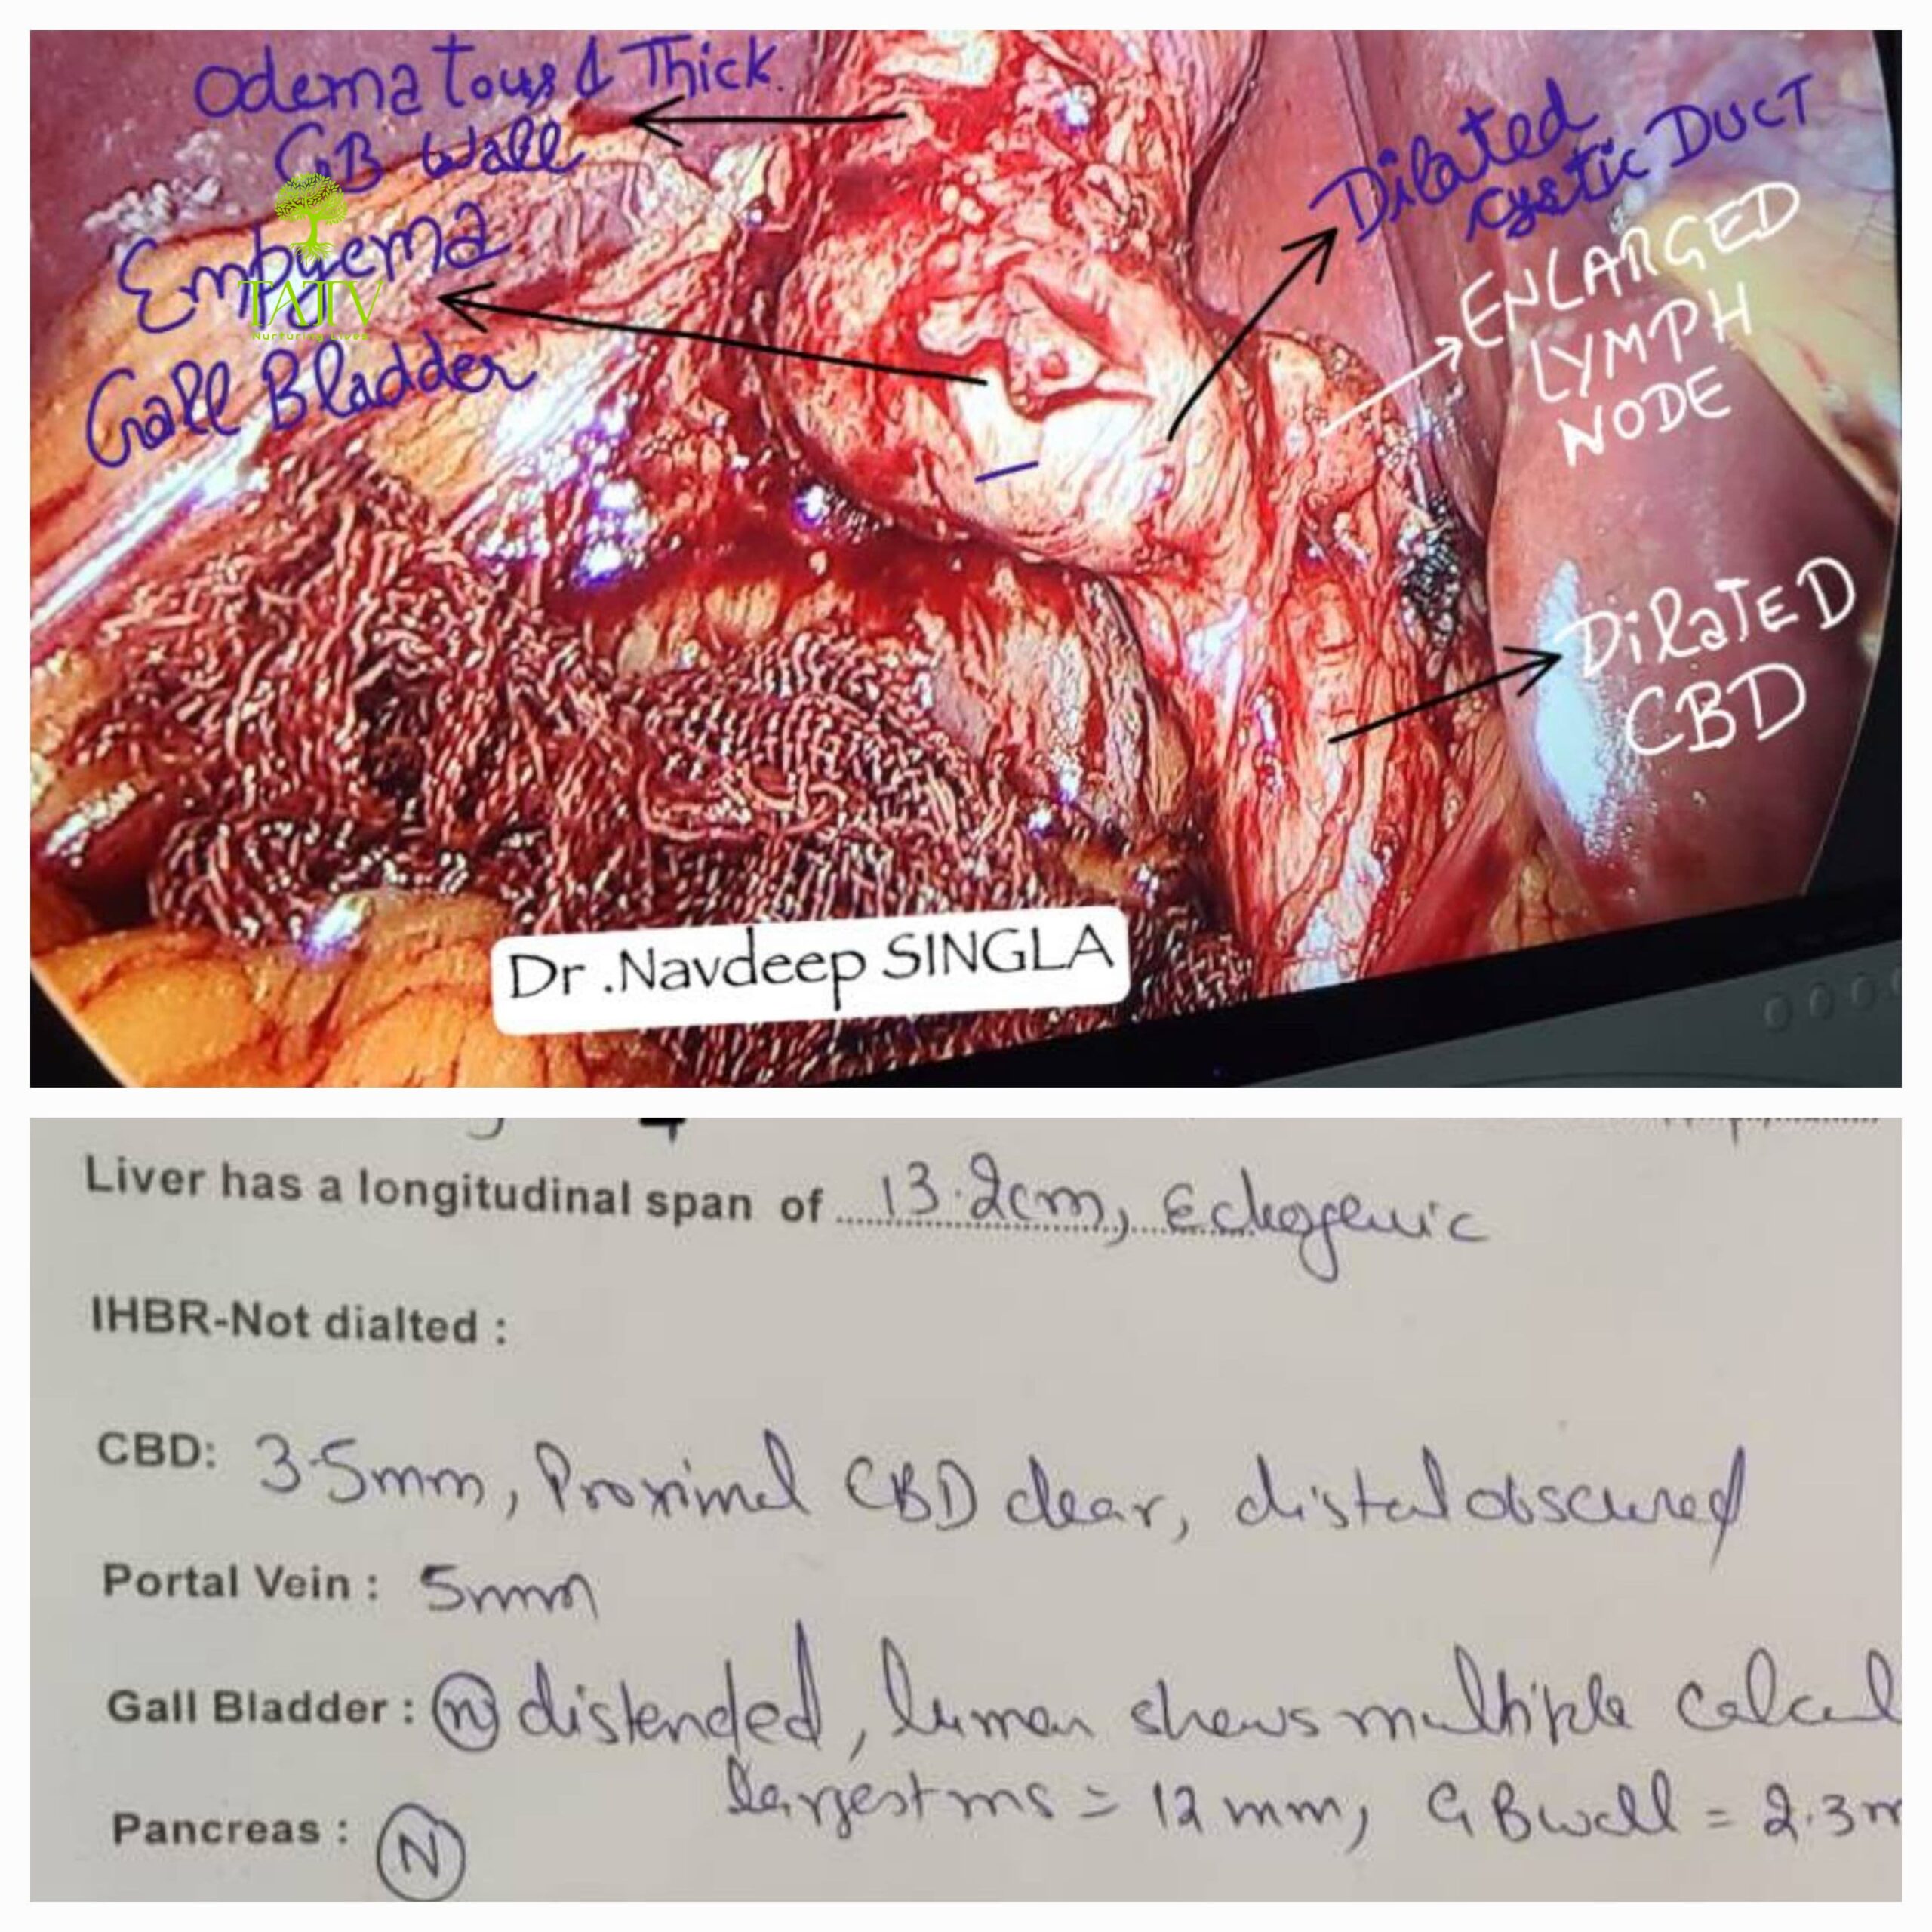 Odematous & Thick.
GB Wall
Empyema
Gall Bladder
TATTV
Nurturing Lives
Dilated
cystic DUCT
ENLARGED
LYMPH
NODE
DilaTED
CBD
Dr .Navdeep SINGLA
Liver has a longitudinal span of 13.2cm, Echogenic
IHBR-Not dialted :
CBD: 3.5mm, Proximal CBD clear, distal obscured
Portal Vein : 5mm
Gall Bladder : (n) distended, lumen shows multiple calcul
largest ms = 12 mm, GB wall = 2.3m
Pancreas : (N)